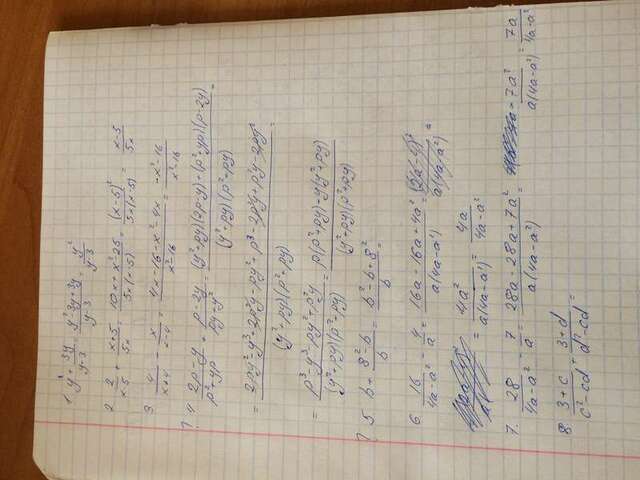 1. y + 3y/(y-3) = (y²-3y+3y)/(y-3) = y²/(y-3)
2. 2/(x-5) + (x+5)/5x = (10x+x²-25)/(5x(x-5)) = (x-5)²/(5x(x-5)) = (x-5)/5x
3. 4/(x+4) - x/(x-4) = (4x-16-x²-4x)/(x²-16) = (-x²-16)/(x²-16)
4. (2p-y)/(p²+yp) + (p-2y)/(py+y²) = ((y²+py)(2p-y)+(p²+yp)(p-2y))/((y²+py)(p²+py)) =
= (2py²-y³+2p²y-py²+p³-2p²y+p²y-2py²)/((y²+py)(p²+py)) =
= (p³-y³-py²+p²y)/((y²+py)(p²-py)) = (p(p²+py)-y(y²+py))/((y²+py)(p²+py))
5. b + (8²-b)/b = (b²-b+8²)/b =
6. 16/(4a-a²) - 4/a = (16a-16a+4a²)/(a(4a-a²)) = =
= 4a²/(a(4a-a²)) = 4a/(4a-a²)
7. 28/(4a-a²) - 7/a = (28a-28a+7a²)/(a(4a-a²)) = 7a²/(a(4a-a²)) = 7a/(4a-a²)
8. (3+c)/(c²-cd) + (3+d)/(d²-cd) =